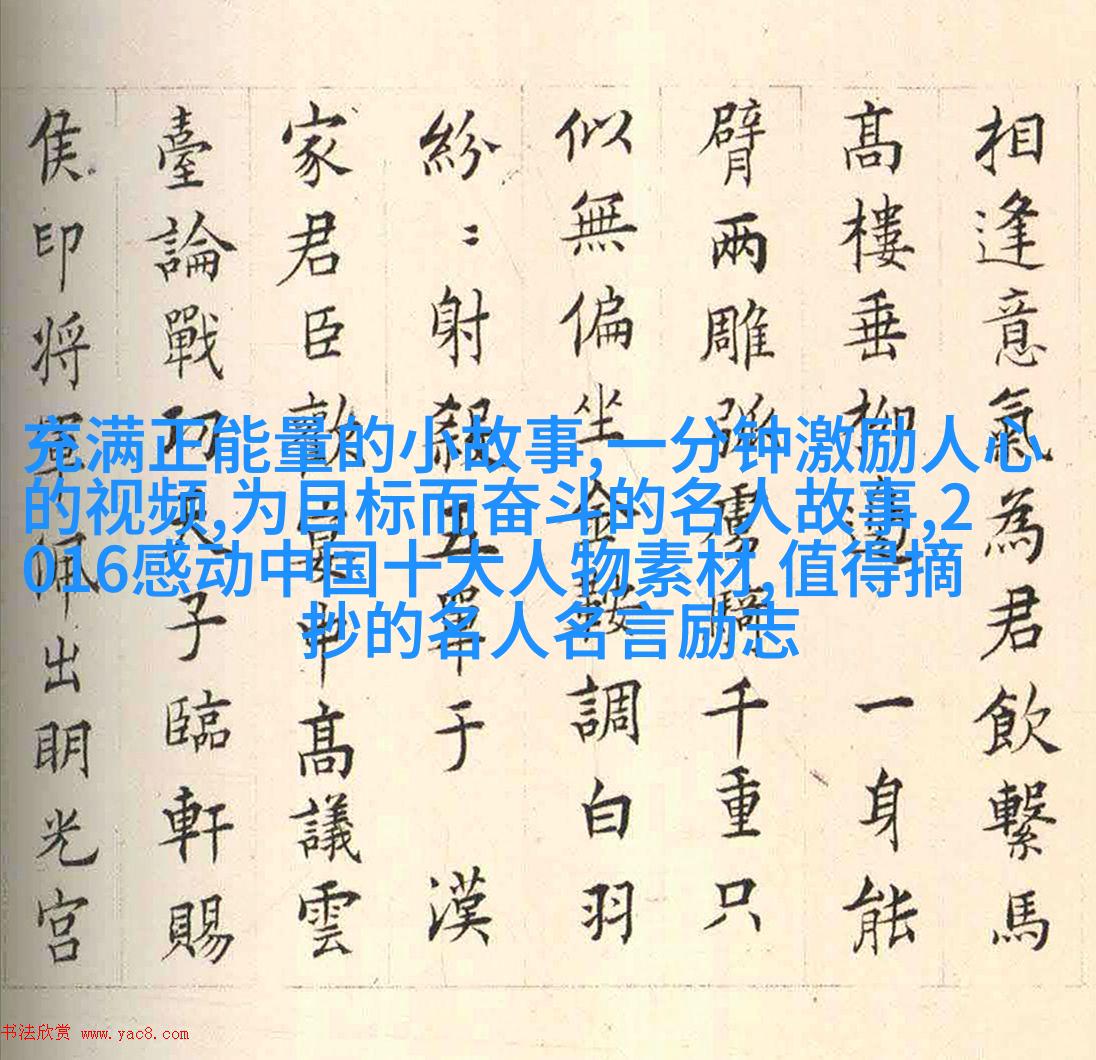 相逢意氣為君飲繫馬
高樓垂柳邊 一身能
臂兩雕弧虜騎千重只
似無偏坐金鞍調白羽
紛〻射殺五單于 漢
家君臣歡宴高議雲
臺論戰功天子臨軒賜
侯印将軍佩出明光宮
充满正能量的小故事,一分钟激励人心
的视频,为目标而奋斗的名人故事,2
016感动中国十大人物素材,值得摘
抄的名人名言励志
书法欣赏 www.yac8.com